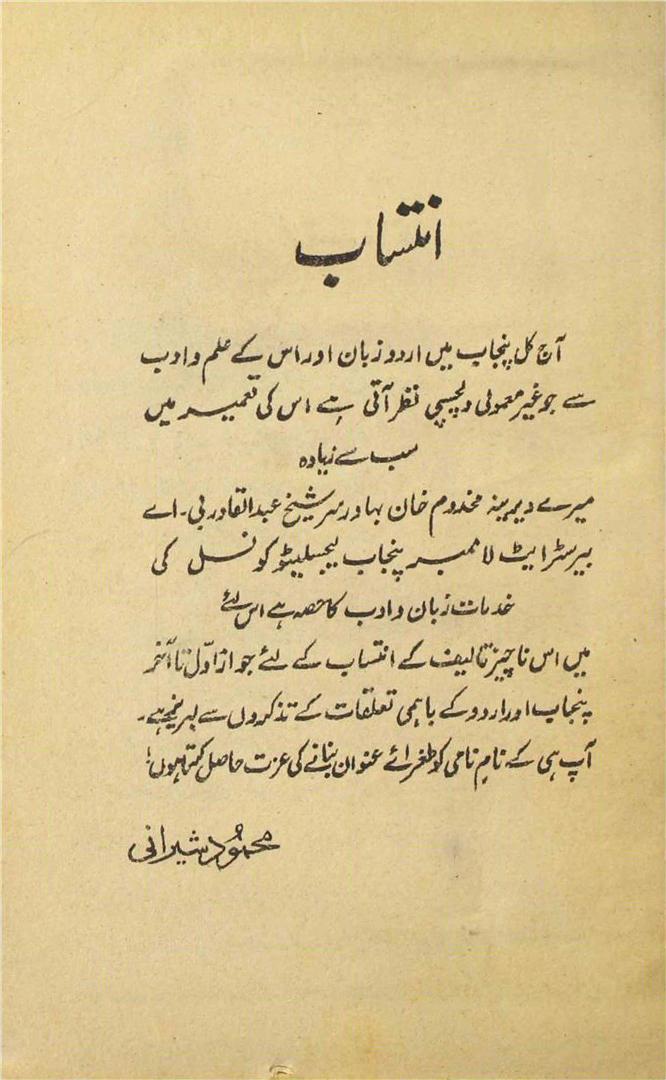 انتساب
آج کل پنجاب میں اردو زبان اور اس کے علم و ادب
سے جو غیر معمولی دلچسپی نظر آتی ہے اس کی تعمیر میں
سب سے زیادہ
میرے دیرینہ مخدوم خان بہادر سر شیخ عبدالقادر بی۔ اے
بیرسٹر ایٹ لا ممبر پنجاب لیجسلیٹو کونسل کی
خدمات زبان و ادب کا حصہ ہے اس لئے
میں اس ناچیز تالیف کے انتساب کے لئے جو از اوّل تا آخر
پنجاب اور اردو کے باہمی تعلقات کے تذکروں سے لبریز ہے۔
آپ ہی کے نامِ نامی کو طغرائے عنوان بنانے کی عزت حاصل کرتا ہوں؛
محمُود شیرانی